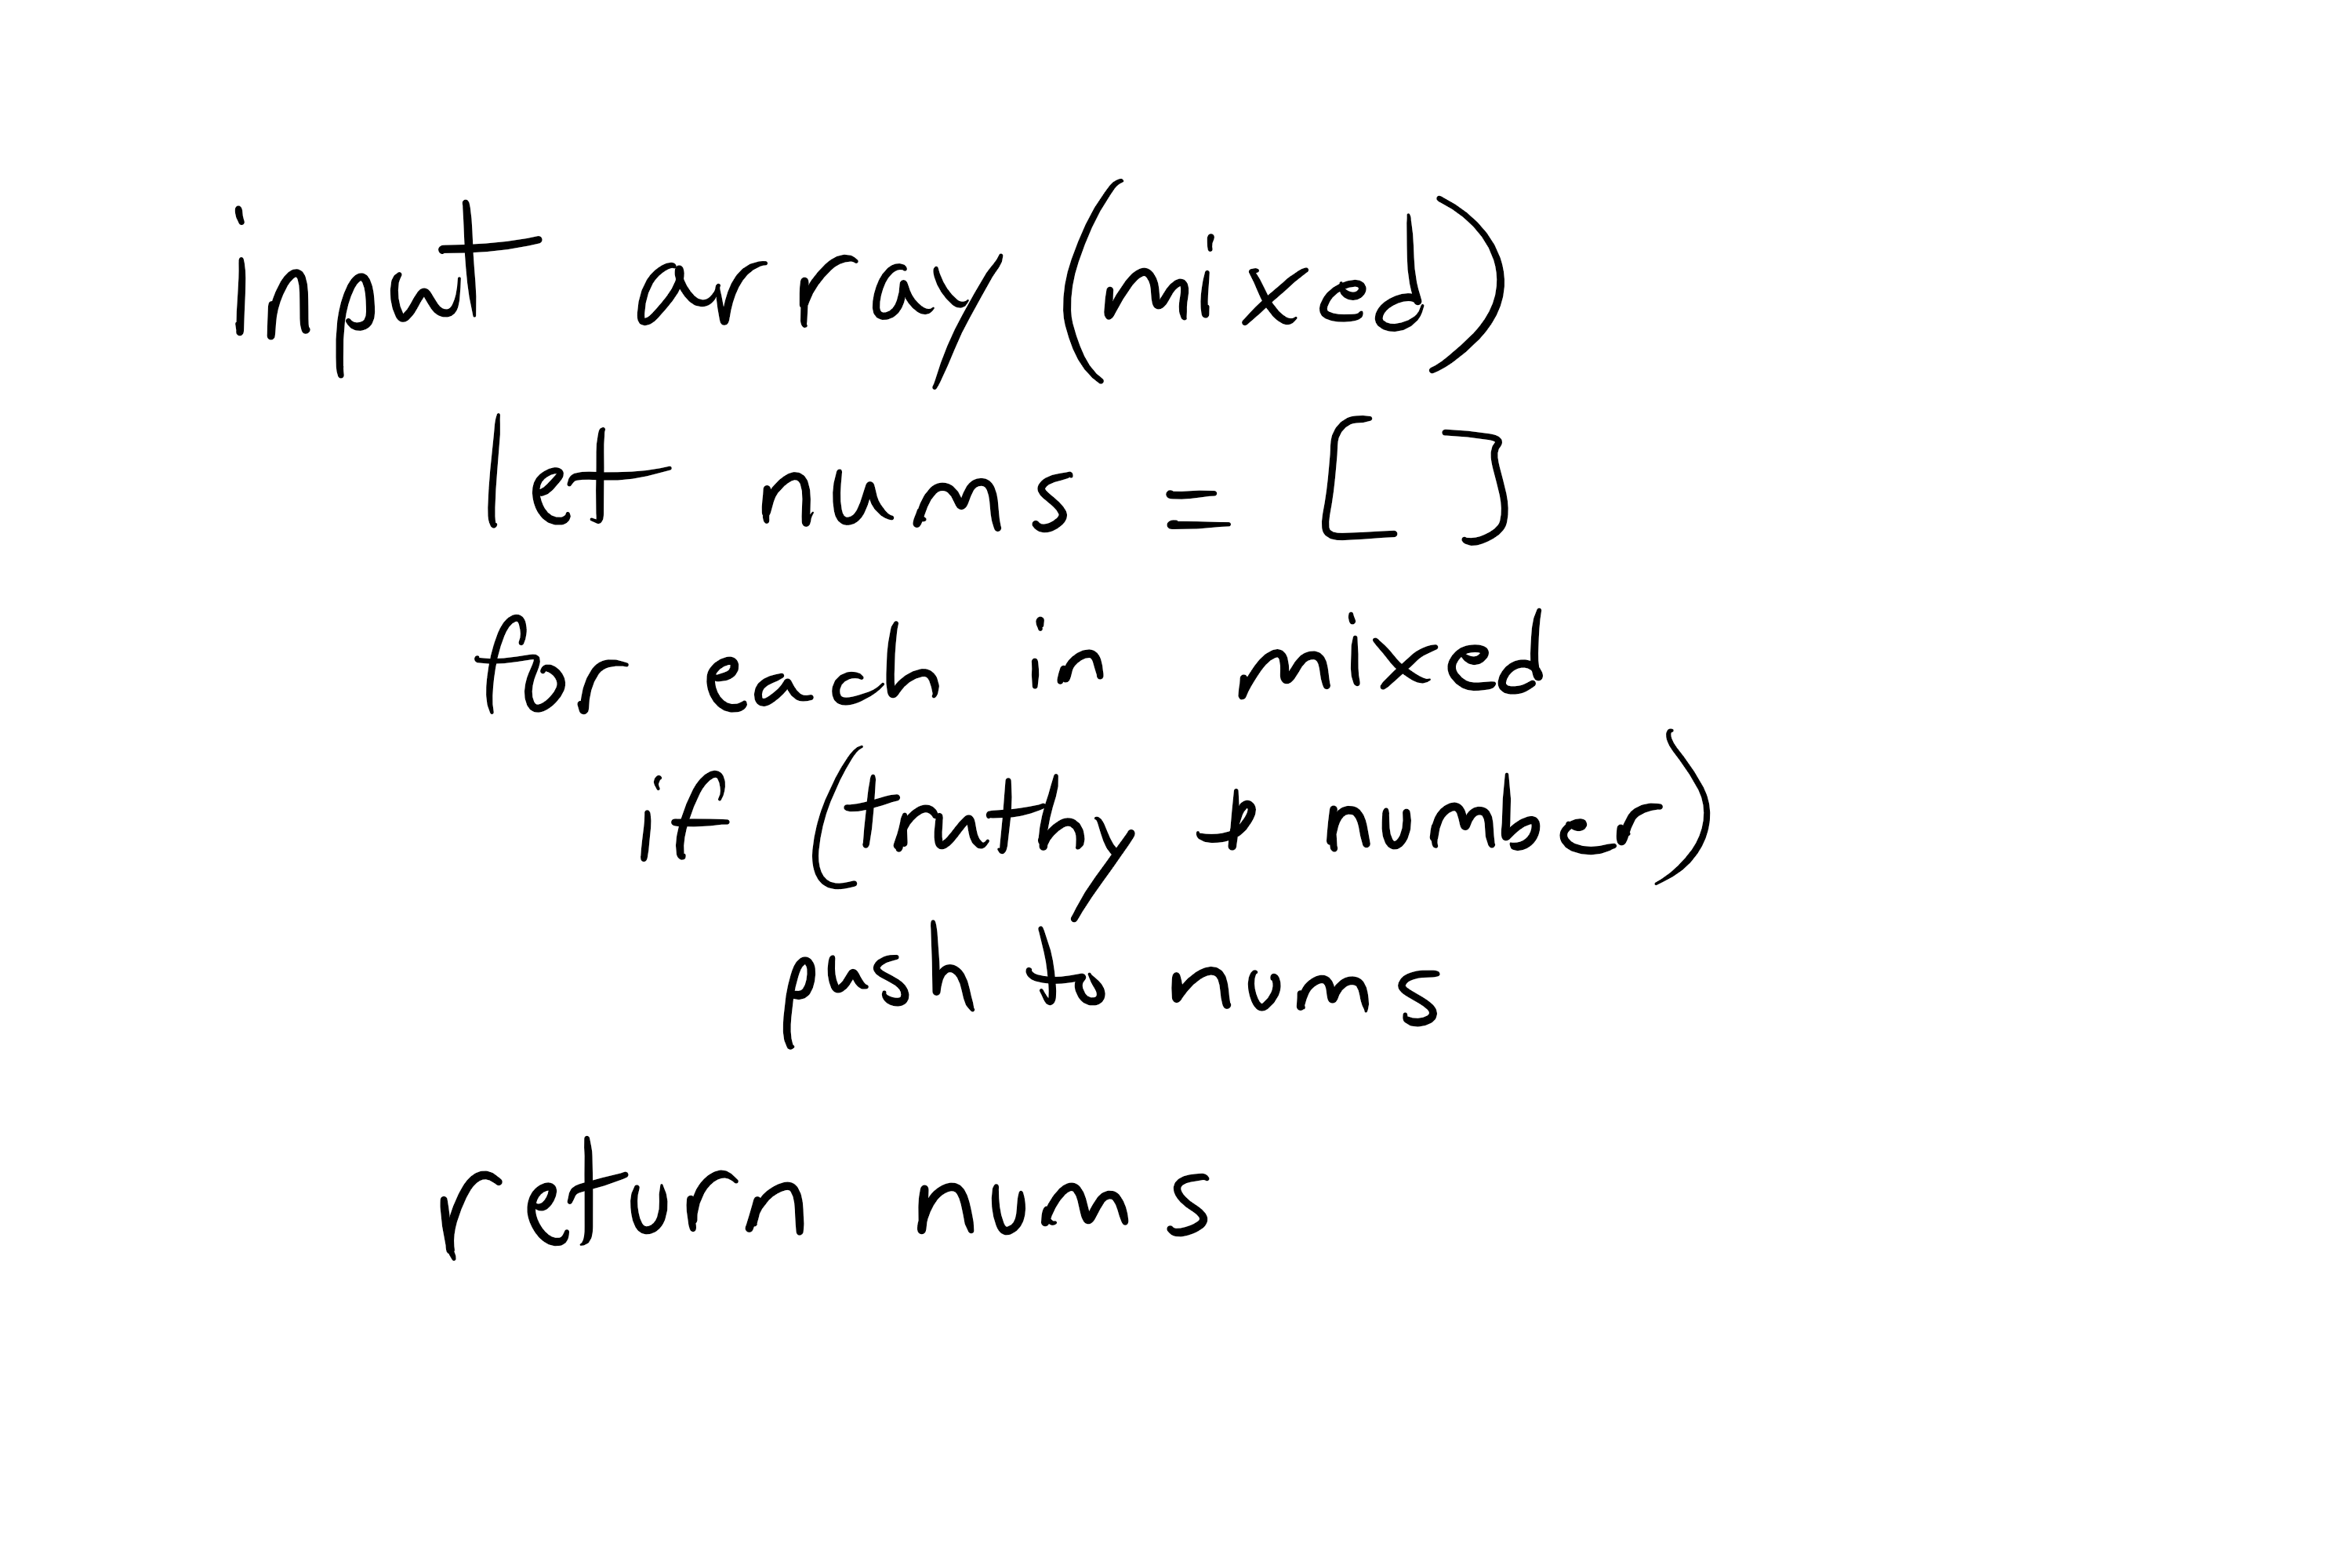 input array (mixed)
let nums = [ ]
for each in mixed
if (truthy & number)
push to nums
return nums